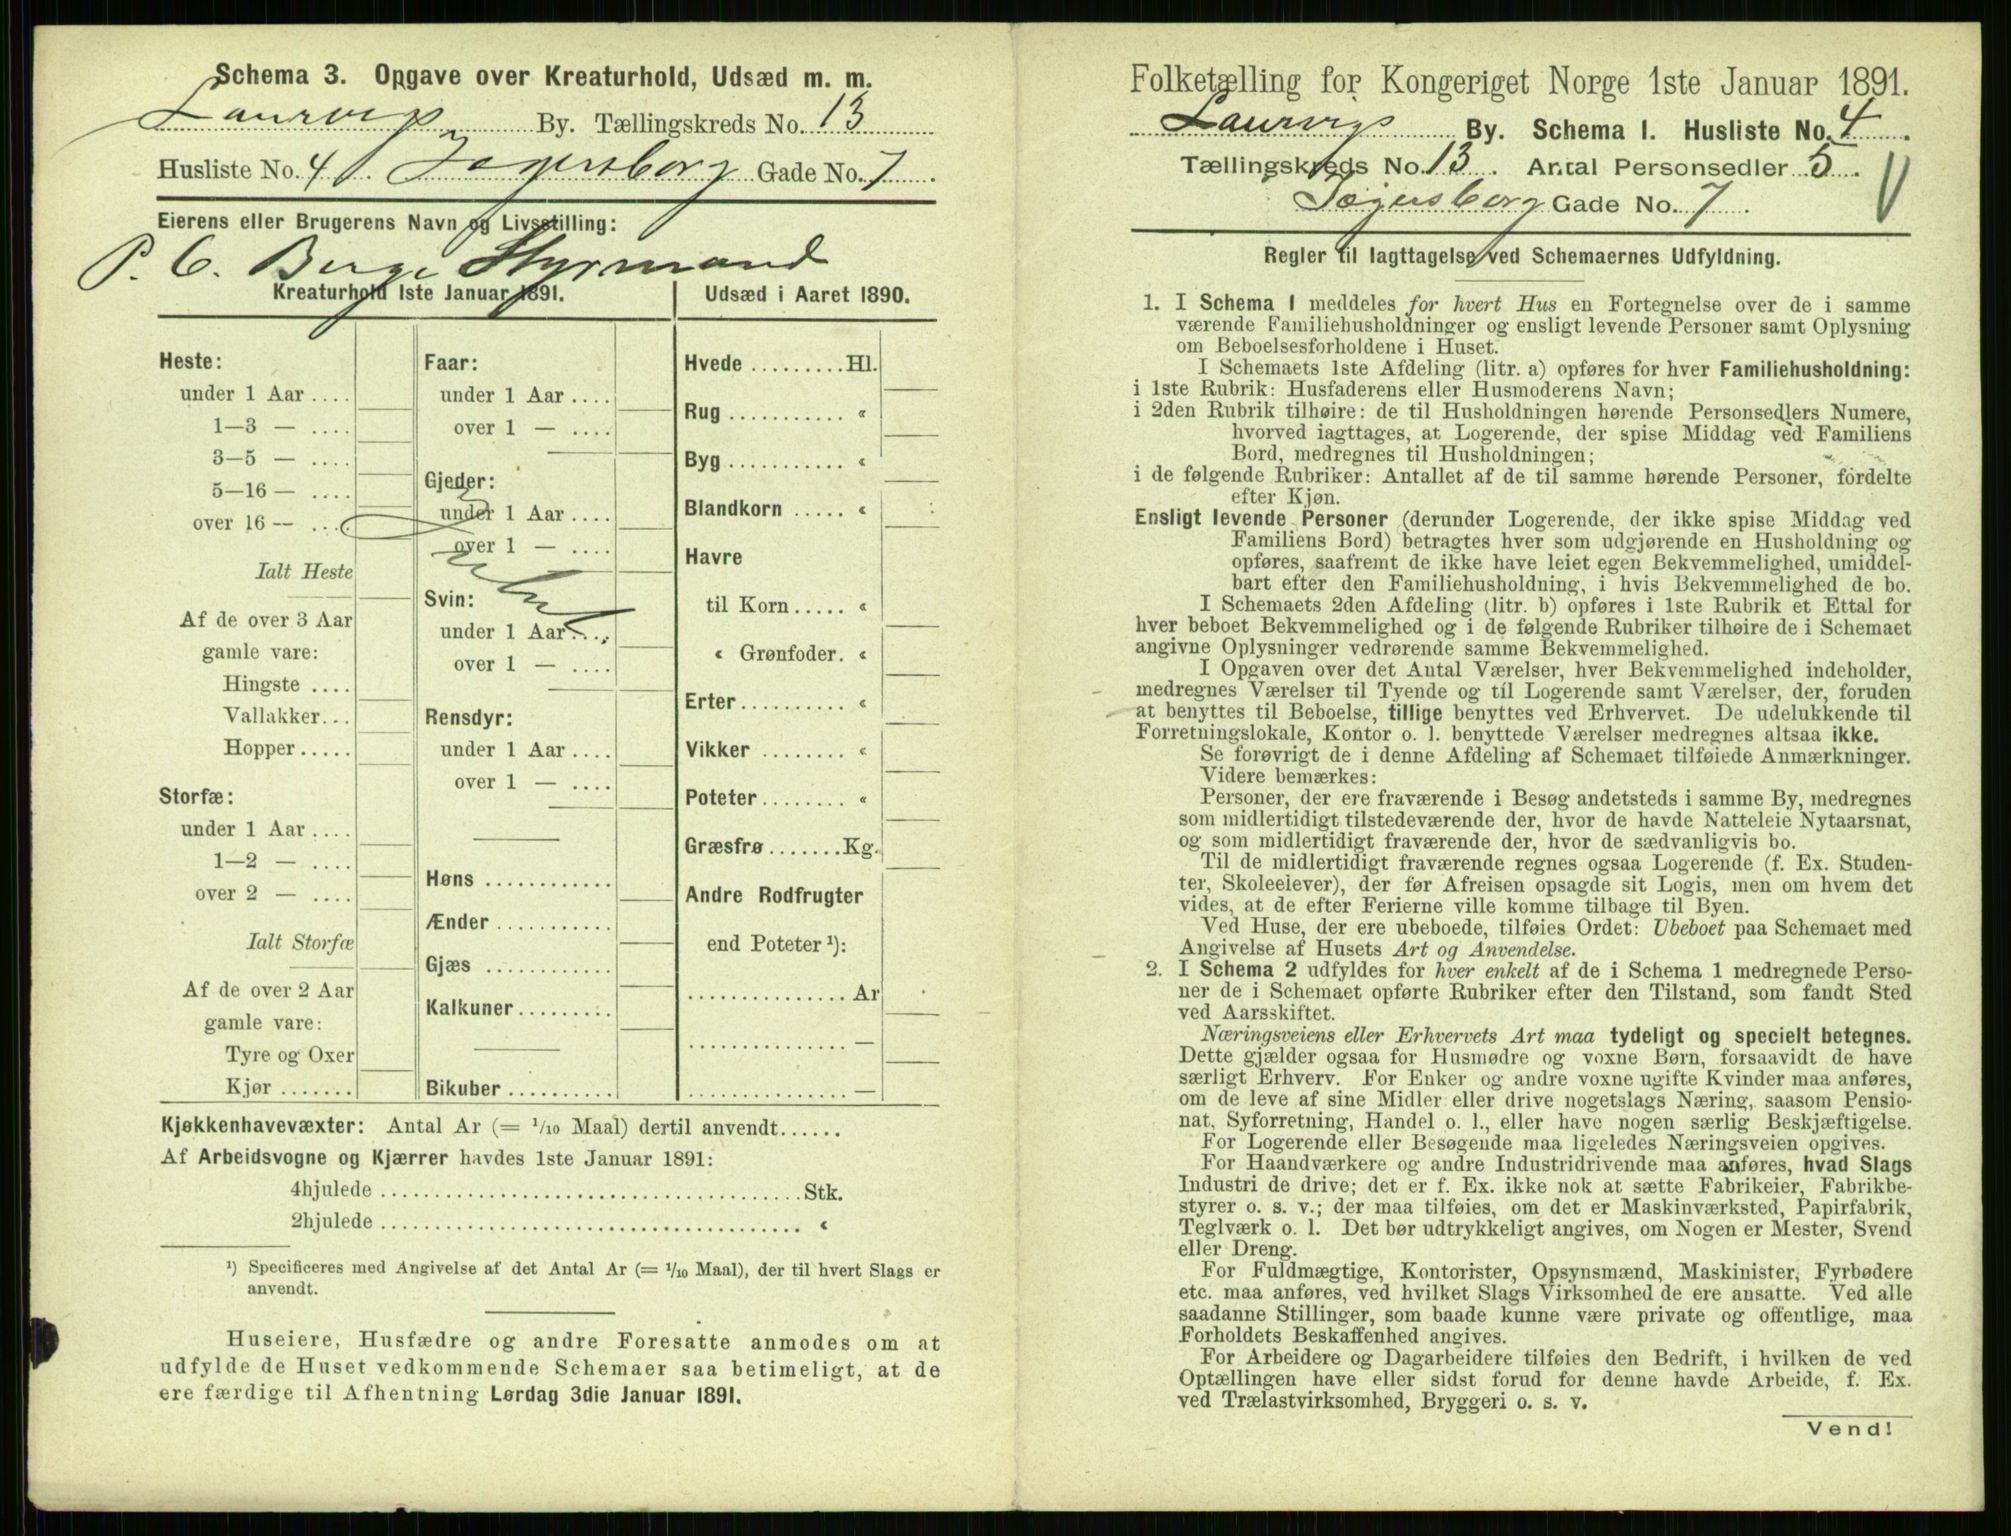 Schema 3. Opgave over Kreaturhold, Udsæd m. m.
Laurvigs By. Tællingskreds No. 13
Husliste No. 4. Jægersborg Gade No. 7.
Eierens eller Brugerens Navn og Livsstilling:
P. C. Berge Styrmand
Kreaturhold 1ste Januar 1891.
Heste:
under 1 Aar ....
1—3 — ....
3—5 — ....
5—16 — ....
over 16 — ....
Ialt Heste
Af de over 3 Aar
gamle vare:
Hingste ....
Vallakker...
Hopper .....
Storfæ:
under 1 Aar ....
1—2 — ....
over 2 — ....
Ialt Storfæ
Af de over 2 Aar
gamle vare:
Tyre og Oxer
Kjør .......
Faar:
under 1 Aar ....
over 1 — ....
Gjeder:
under 1 Aar ....
over 1 — ....
Svin:
under 1 Aar ....
over 1 — ....
Rensdyr:
under 1 Aar ....
over 1 — ....
Høns ............
Ænder ...........
Gjæs ............
Kalkuner.........
Bikuber ..........
Udsæd i Aaret 1890.
Hvede ......... Hl.
Rug ........... «
Byg ........... «
Blandkorn ..... «
Havre
til Korn ..... «
« Grønfoder. «
Erter.......... «
Vikker ........ «
Poteter ........ «
Græsfrø ....... Kg.
Andre Rodfrugter
end Poteter ¹):
............... Ar
............... —
............... —
Kjøkkenhavevæxter: Antal Ar (= ¹/10 Maal) dertil anvendt......
Af Arbeidsvogne og Kjærrer havdes 1ste Januar 1891:
4hjulede ..................................... Stk.
2hjulede ..................................... «
¹) Specificeres med Angivelse af det Antal Ar (= ¹/10 Maal), der til hvert Slags er
anvendt.
Huseiere, Husfædre og andre Foresatte anmodes om at
udfylde de Huset vedkommende Schemaer saa betimeligt, at de
ere færdige til Afhentning Lørdag 3die Januar 1891.
Folketælling for Kongeriget Norge 1ste Januar 1891.
Laurvigs By. Schema 1. Husliste No. 4.
Tællingskreds No. 13. Antal Personsedler 5.
Jægersborg Gade No. 7.
Regler til Iagttagelse ved Schemaernes Udfyldning.
1. I Schema 1 meddeles for hvert Hus en Fortegnelse over de i samme
værende Familiehusholdninger og ensligt levende Personer samt Oplysning
om Beboelsesforholdene i Huset.
I Schemaets 1ste Afdeling (litr. a) opføres for hver Familiehusholdning:
i 1ste Rubrik: Husfaderens eller Husmoderens Navn;
i 2den Rubrik tilhøire: de til Husholdningen hørende Personsedlers Numere,
hvorved iagttages, at Logerende, der spise Middag ved Familiens
Bord, medregnes til Husholdningen;
i de følgende Rubriker: Antallet af de til samme hørende Personer, fordelte
efter Kjøn.
Ensligt levende Personer (derunder Logerende, der ikke spise Middag ved
Familiens Bord) betragtes hver som udgjørende en Husholdning og
opføres, saafremt de ikke have leiet egen Bekvemmelighed, umiddel-
bart efter den Familiehusholdning, i hvis Bekvemmelighed de bo.
I Schemaets 2den Afdeling (litr. b) opføres i 1ste Rubrik et Ettal for
hver beboet Bekvemmelighed og i de følgende Rubriker tilhøire de i Schemaet
angivne Oplysninger vedrørende samme Bekvemmelighed.
I Opgaven over det Antal Værelser, hver Bekvemmelighed indeholder,
medregnes Værelser til Tyende og til Logerende samt Værelser, der, foruden
at benyttes til Beboelse, tillige benyttes ved Erhvervet. De udelukkende til
Forretningslokale, Kontor o. l. benyttede Værelser medregnes altsaa ikke.
Se forøvrigt de i denne Afdeling af Schemaet tilføiede Anmærkninger.
Videre bemærkes:
Personer, der ere fraværende i Besøg andetsteds i samme By, medregnes
som midlertidigt tilstedeværende der, hvor de havde Natteleie Nytaarsnat,
og som midlertidigt fraværende der, hvor de sædvanligvis bo.
Til de midlertidigt fraværende regnes ogsaa Logerende (f. Ex. Studen-
ter, Skoleeiever), der før Afreisen opsagde sit Logis, men om hvem det
vides, at de efter Ferierne ville komme tilbage til Byen.
Ved Huse, der ere ubeboede, tilføies Ordet: Ubeboet paa Schemaet med
Angivelse af Husets Art og Anvendelse.
2. I Schema 2 udfyldes for hver enkelt af de i Schema 1 medregnede Perso-
ner de i Schemaet opførte Rubriker efter den Tilstand, som fandt Sted
ved Aarsskiftet.
Næringsveiens eller Erhvervets Art maa tydeligt og specielt betegnes.
Dette gjælder ogsaa for Husmødre og voxne Børn, forsaavidt de have
særligt Erhverv. For Enker og andre voxne ugifte Kvinder maa anføres,
om de leve af sine Midler eller drive nogetslags Næring, saasom Pensio-
nat, Syforretning, Handel o. l., eller have nogen særlig Beskjæftigelse.
For Logerende eller Besøgende maa ligeledes Næringsveien opgives.
For Haandværkere og andre Industridrivende maa anføres, hvad Slags
Industri de drive; det er f. Ex. ikke nok at sætte Fabrikeier, Fabrikbe-
styrer o. s. v.; der maa tilføies, om det er Maskinværksted, Papirfabrik,
Teglværk o. l. Det bør udtrykkeligt angives, om Nogen er Mester, Svend
eller Dreng.
For Fuldmægtige, Kontorister, Opsynsmænd, Maskinister, Fyrbødere
etc. maa anføres, ved hvilket Slags Virksomhed de ere ansatte. Ved alle
saadanne Stillinger, som baade kunne være private og offentlige, maa
Forholdets Beskaffenhed angives.
For Arbeidere og Dagarbeidere tilføies den Bedrift, i hvilken de ved
Optællingen have eller sidst forud for denne havde Arbeide, f. Ex.
ved Trælastvirksomhed, Bryggeri o. s. v.
Vend!